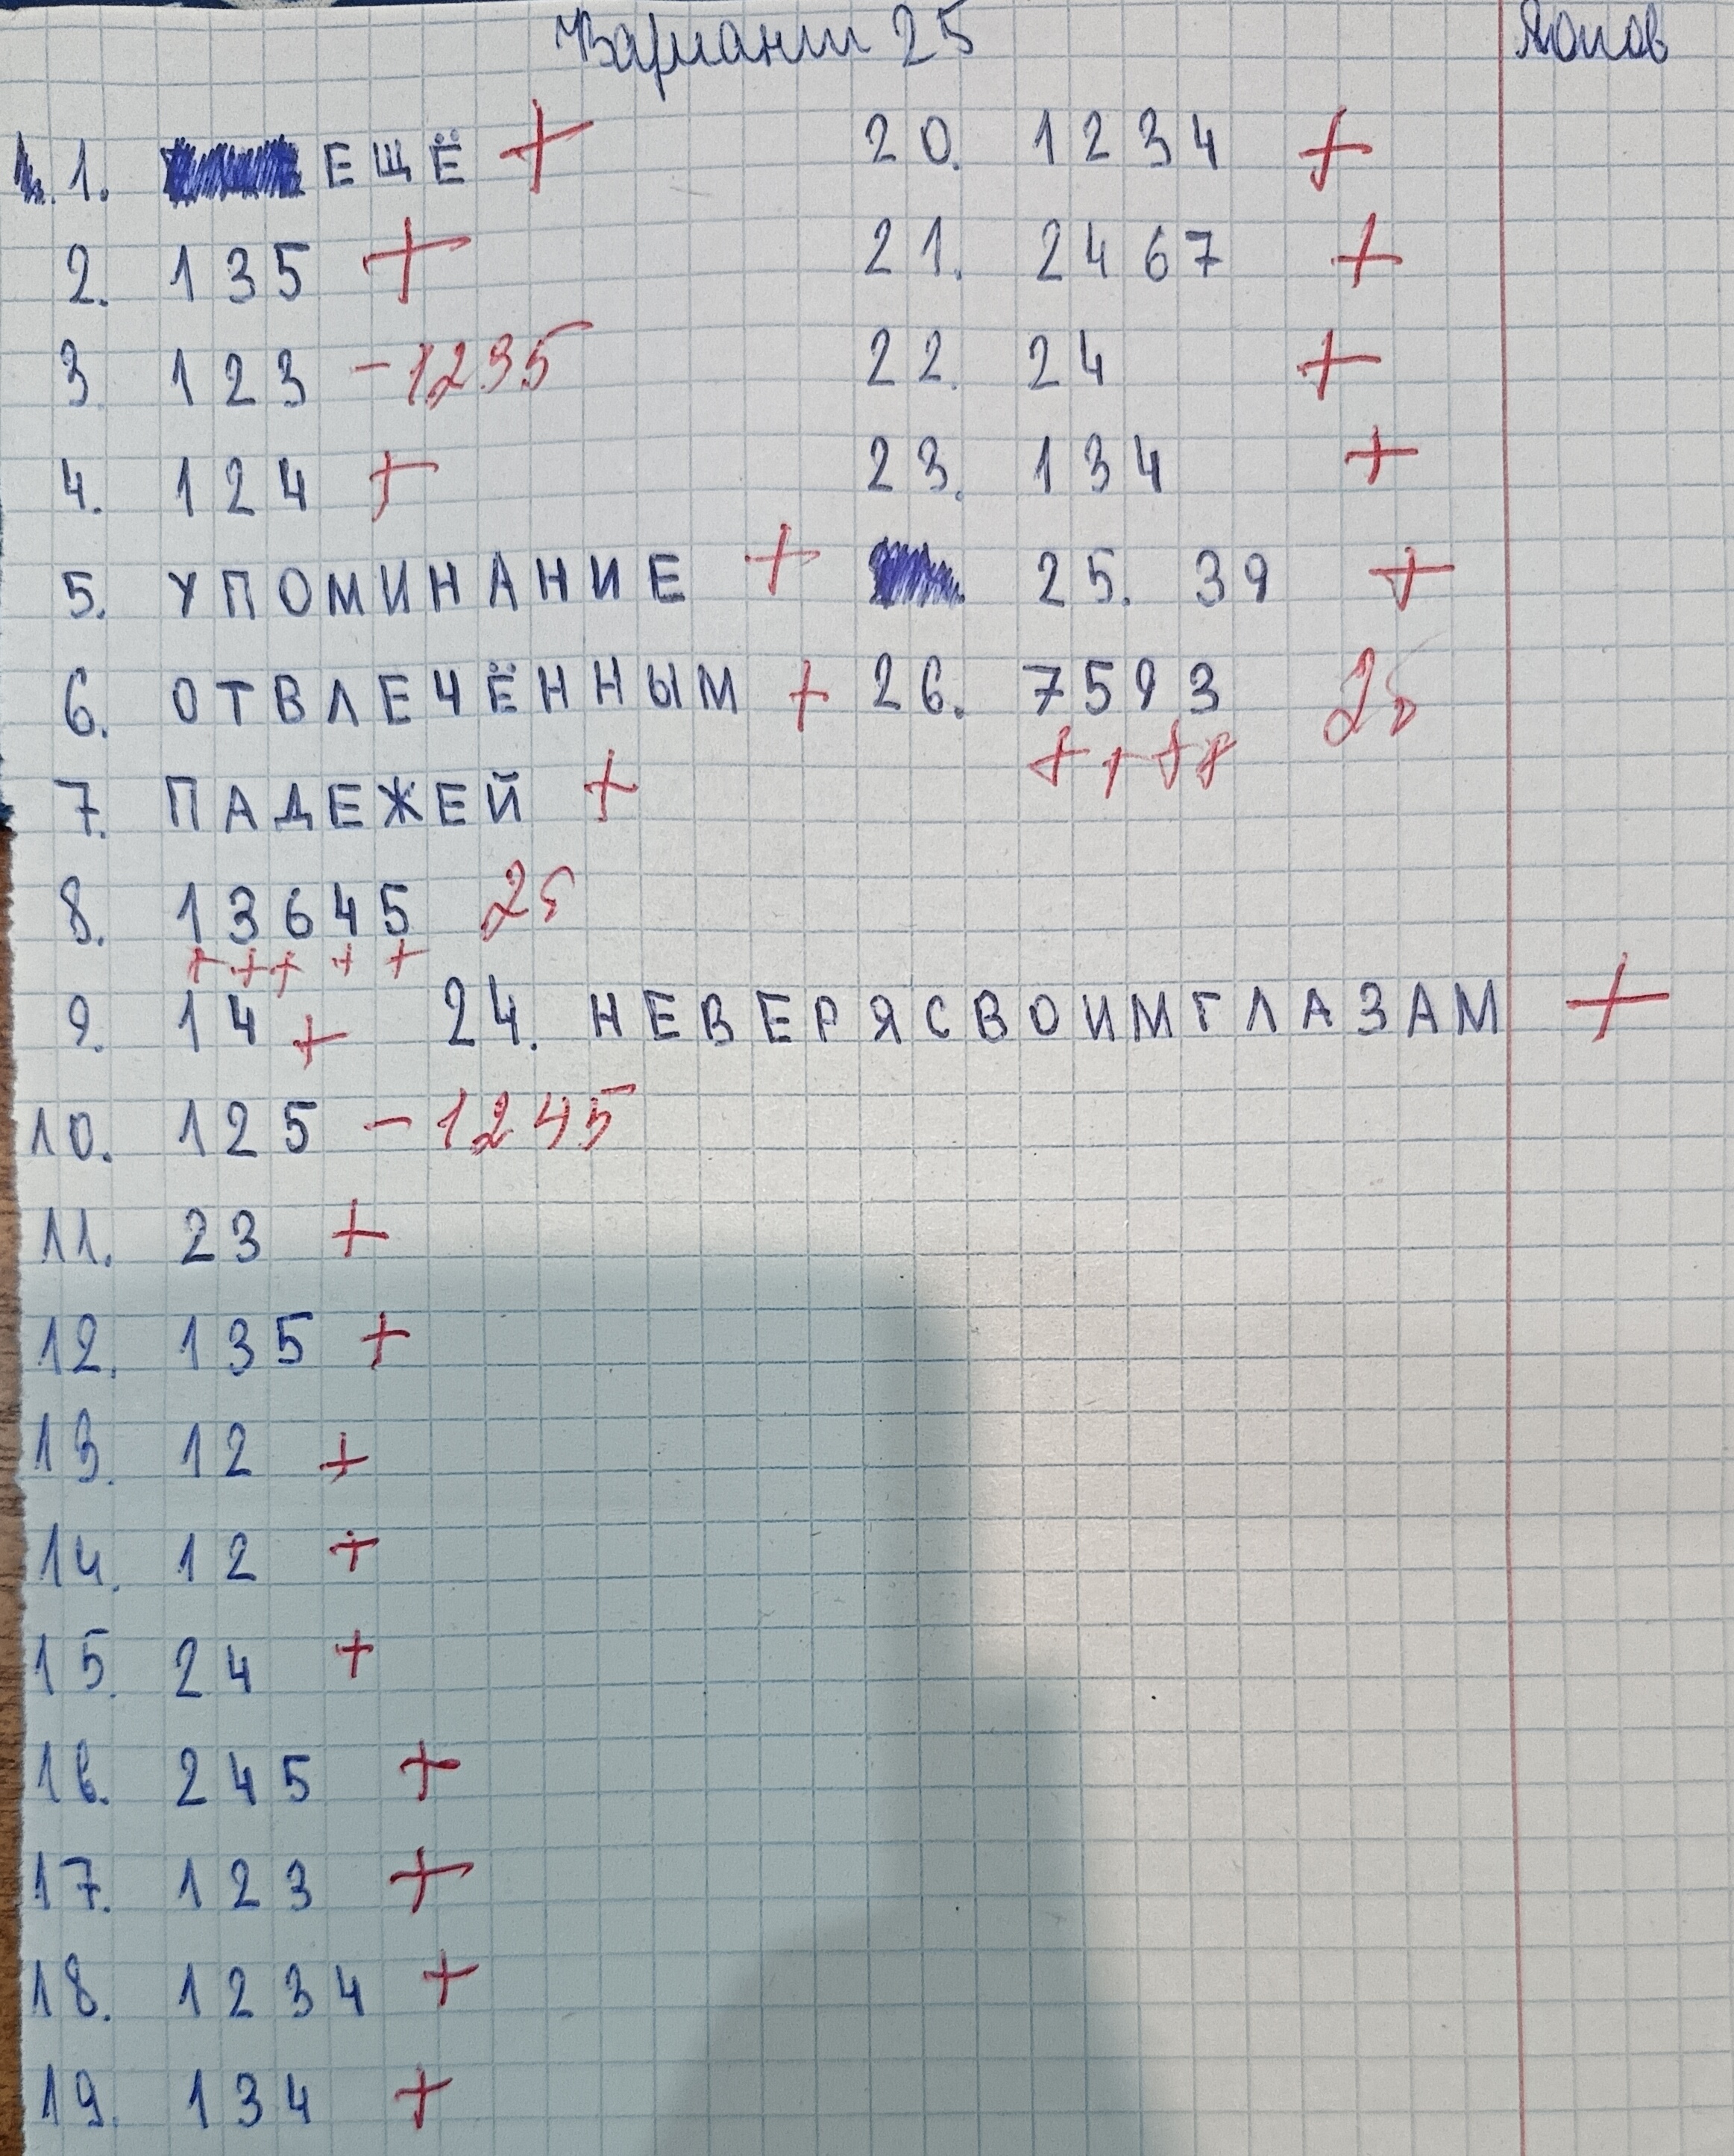 Вариант 25
1. ЕЩЁ +
2. 135 +
3 123 - 1235
4. 124 +
5. УПОМИНАНИЕ +
6. ОТВЛЕЧЁННЫМ +
7. ПАДЕЖЕЙ +
8. 13645 2б
+ + + + +
9. 14 +
10. 125 - 1245
11. 23 +
12. 135 +
13. 12 +
14. 12 +
15. 24 +
16. 245 +
17. 123 +
18. 1234 +
19. 134 +
20. 1234 +
21. 2467 +
22. 24 +
23. 134 +
25. 39 +
26. 7593 2б
+ + + +
24. НЕВЕРЯСВОИМГЛАЗАМ +